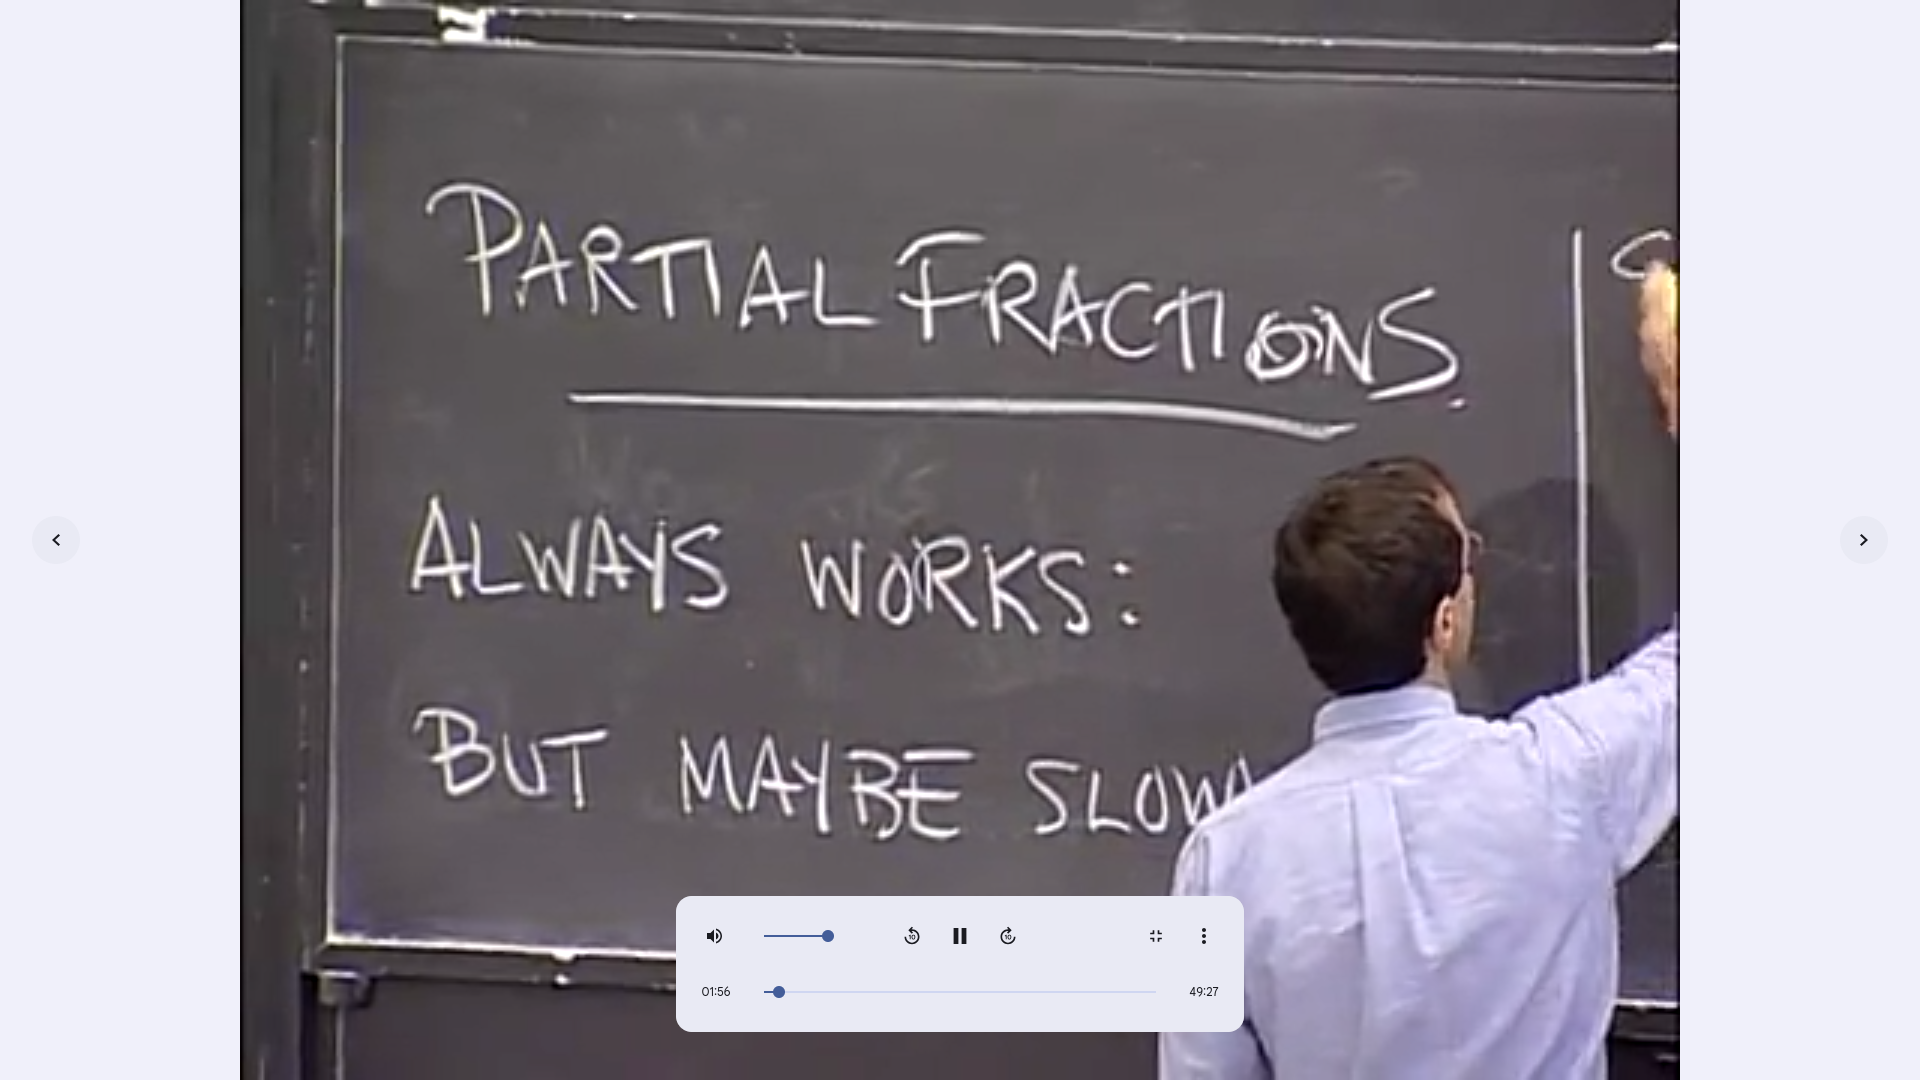 PARTIAL FRACTIONS.
ALWAYS WORKS:
BUT MAYBE SLOW
10
10
01:56
49:27